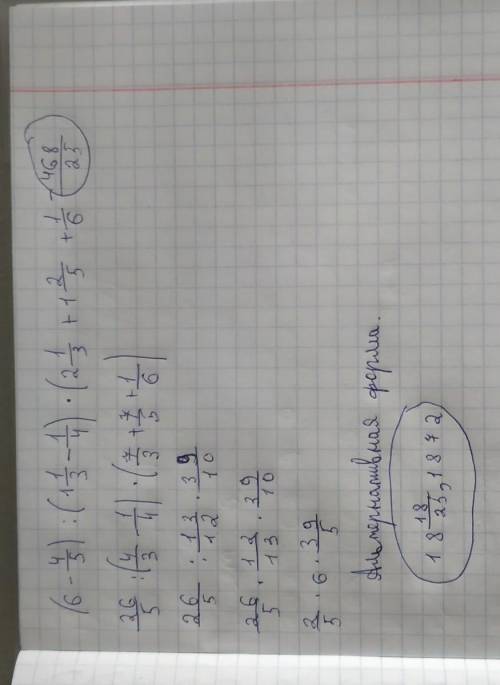 (6 - 4/5) : (1 1/3 - 1/4) · (2 1/3 + 1 2/5 + 1/6 = 468/25
26/5 : (4/3 - 1/4) · (7/3 + 7/5 + 1/6)
26/5 : 13/12 · 39/10
26/5 · 12/13 · 39/10
2/5 · 6 · 39/5
Альтернативная форма.
18 18/25, 1872